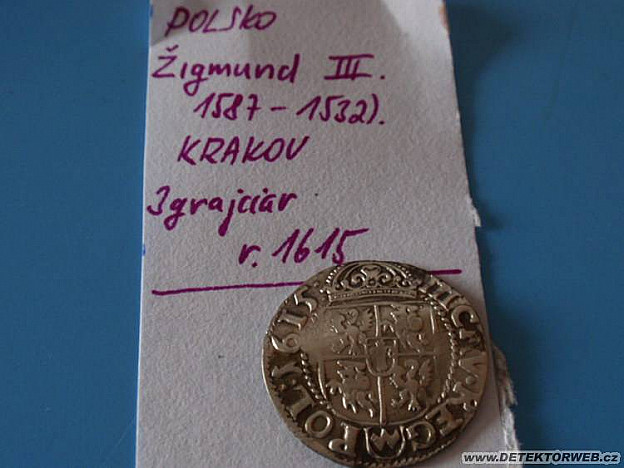 POLSKO
Žigmund III.
1587-1532).
KRAKOV
3grajciar
r. 1615
1615
POL
REG
www.DETEKTORWEB.cz